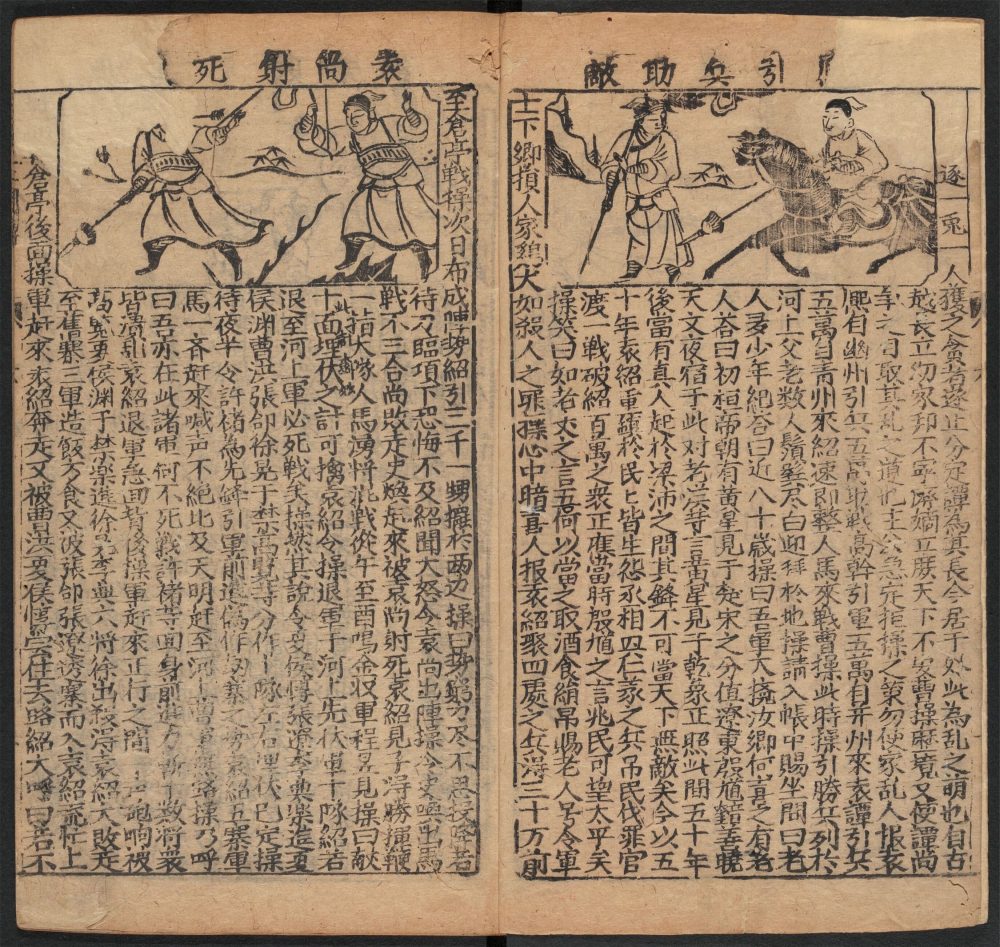 引兵助敵
逐一兔一人獲之貪者遂止分定譚為其長今居于外此為乱之萌也自古
越長立幼家邦不寧廢嫡立庶天下不安曹操壓境又使譚尚
爭之自取其乱之道也主公急定拒操之策勿使家乱人报袁
熈自幽州引兵五萬助戦高幹引軍五萬自并州來袁譚引兵
五萬自青州來紹速即整人馬來戦曹操此時操引勝兵列於
河上父老数人鬚髮尽白迎拜於地操請入帳中賜坐問曰老
人多少年紀答曰近八十歲操曰吾軍大擾汝鄉何喜之有老
人答曰初桓帝朝有黃星見于楚宋之分值遼東殷馗錯善曉
天文夜宿于此对老漢等言黃星見于乾象正照此間五十年
後當有真人起於梁沛之間其鋒不可當天下無敵矣今以五
十年袁紹重斂於民民皆生怨丞相以仁義之兵吊民伐罪官
渡一戦破紹百萬之衆正應當時殷馗之言兆民可望太平矣
操笑曰如老丈之言吾何以當之取酒食絹帛賜老人号令軍
士下鄉損人家雞犬如殺人之罪操心中暗喜人报袁紹聚四處之兵得三十万前
袁尚射死
至倉亭戦操次日布成陣勢紹引二子一甥擺於两边操曰勢窮力尽不思投降若
待刀臨項下恐悔不及紹聞大怒令袁尚出陣操令史喚出馬
戦不三合尚敗走史煥赶來被袁尚射死袁紹見子得勝揮鞭
一指大隊人馬湧將混戦從午至酉鳴金收軍程昱見操曰献
十面埋伏之計可擒袁紹令操退軍于河上先伏軍十隊紹若
退至河上軍必死戦矣操然其說令夏侯惇張遼李典樂進夏
侯渊曹洪張郃徐晃于禁高覽等分作十隊左右埋伏已定操
待夜半令許褚為先鋒引軍前進偽作刼寨之勢袁紹五寨軍
馬一斉赶來喊声不絕比及天明赶至河上曹軍無路操乃呼
曰吾亦在此諸軍何不死戦許褚等回身前進力斬十数將袁
皆潰乱袁紹退軍急回背後操軍赶來正行之間一声砲响被
高覽夏侯渊于禁樂進徐晃李典六將殺得袁紹大敗走
至舊寨三軍造飯方食又被張郃張遼透寨而入袁紹慌忙上
倉亭後面操軍赶來袁紹奔走又被曹洪夏侯惇住去路紹大呼曰若不